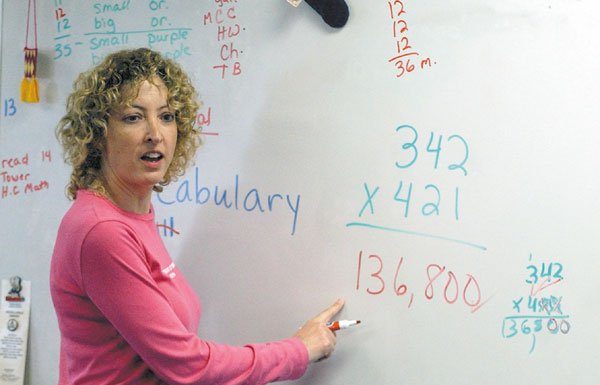 12
12
35 -
small or.
big or.
small purple
big purple
M C C
H.W.
Ch.
T B
12
12
12
36 m.
13
read 14
Tower
H.C Math
cabulary
342
x 421
136,800
342
x 4
136,800